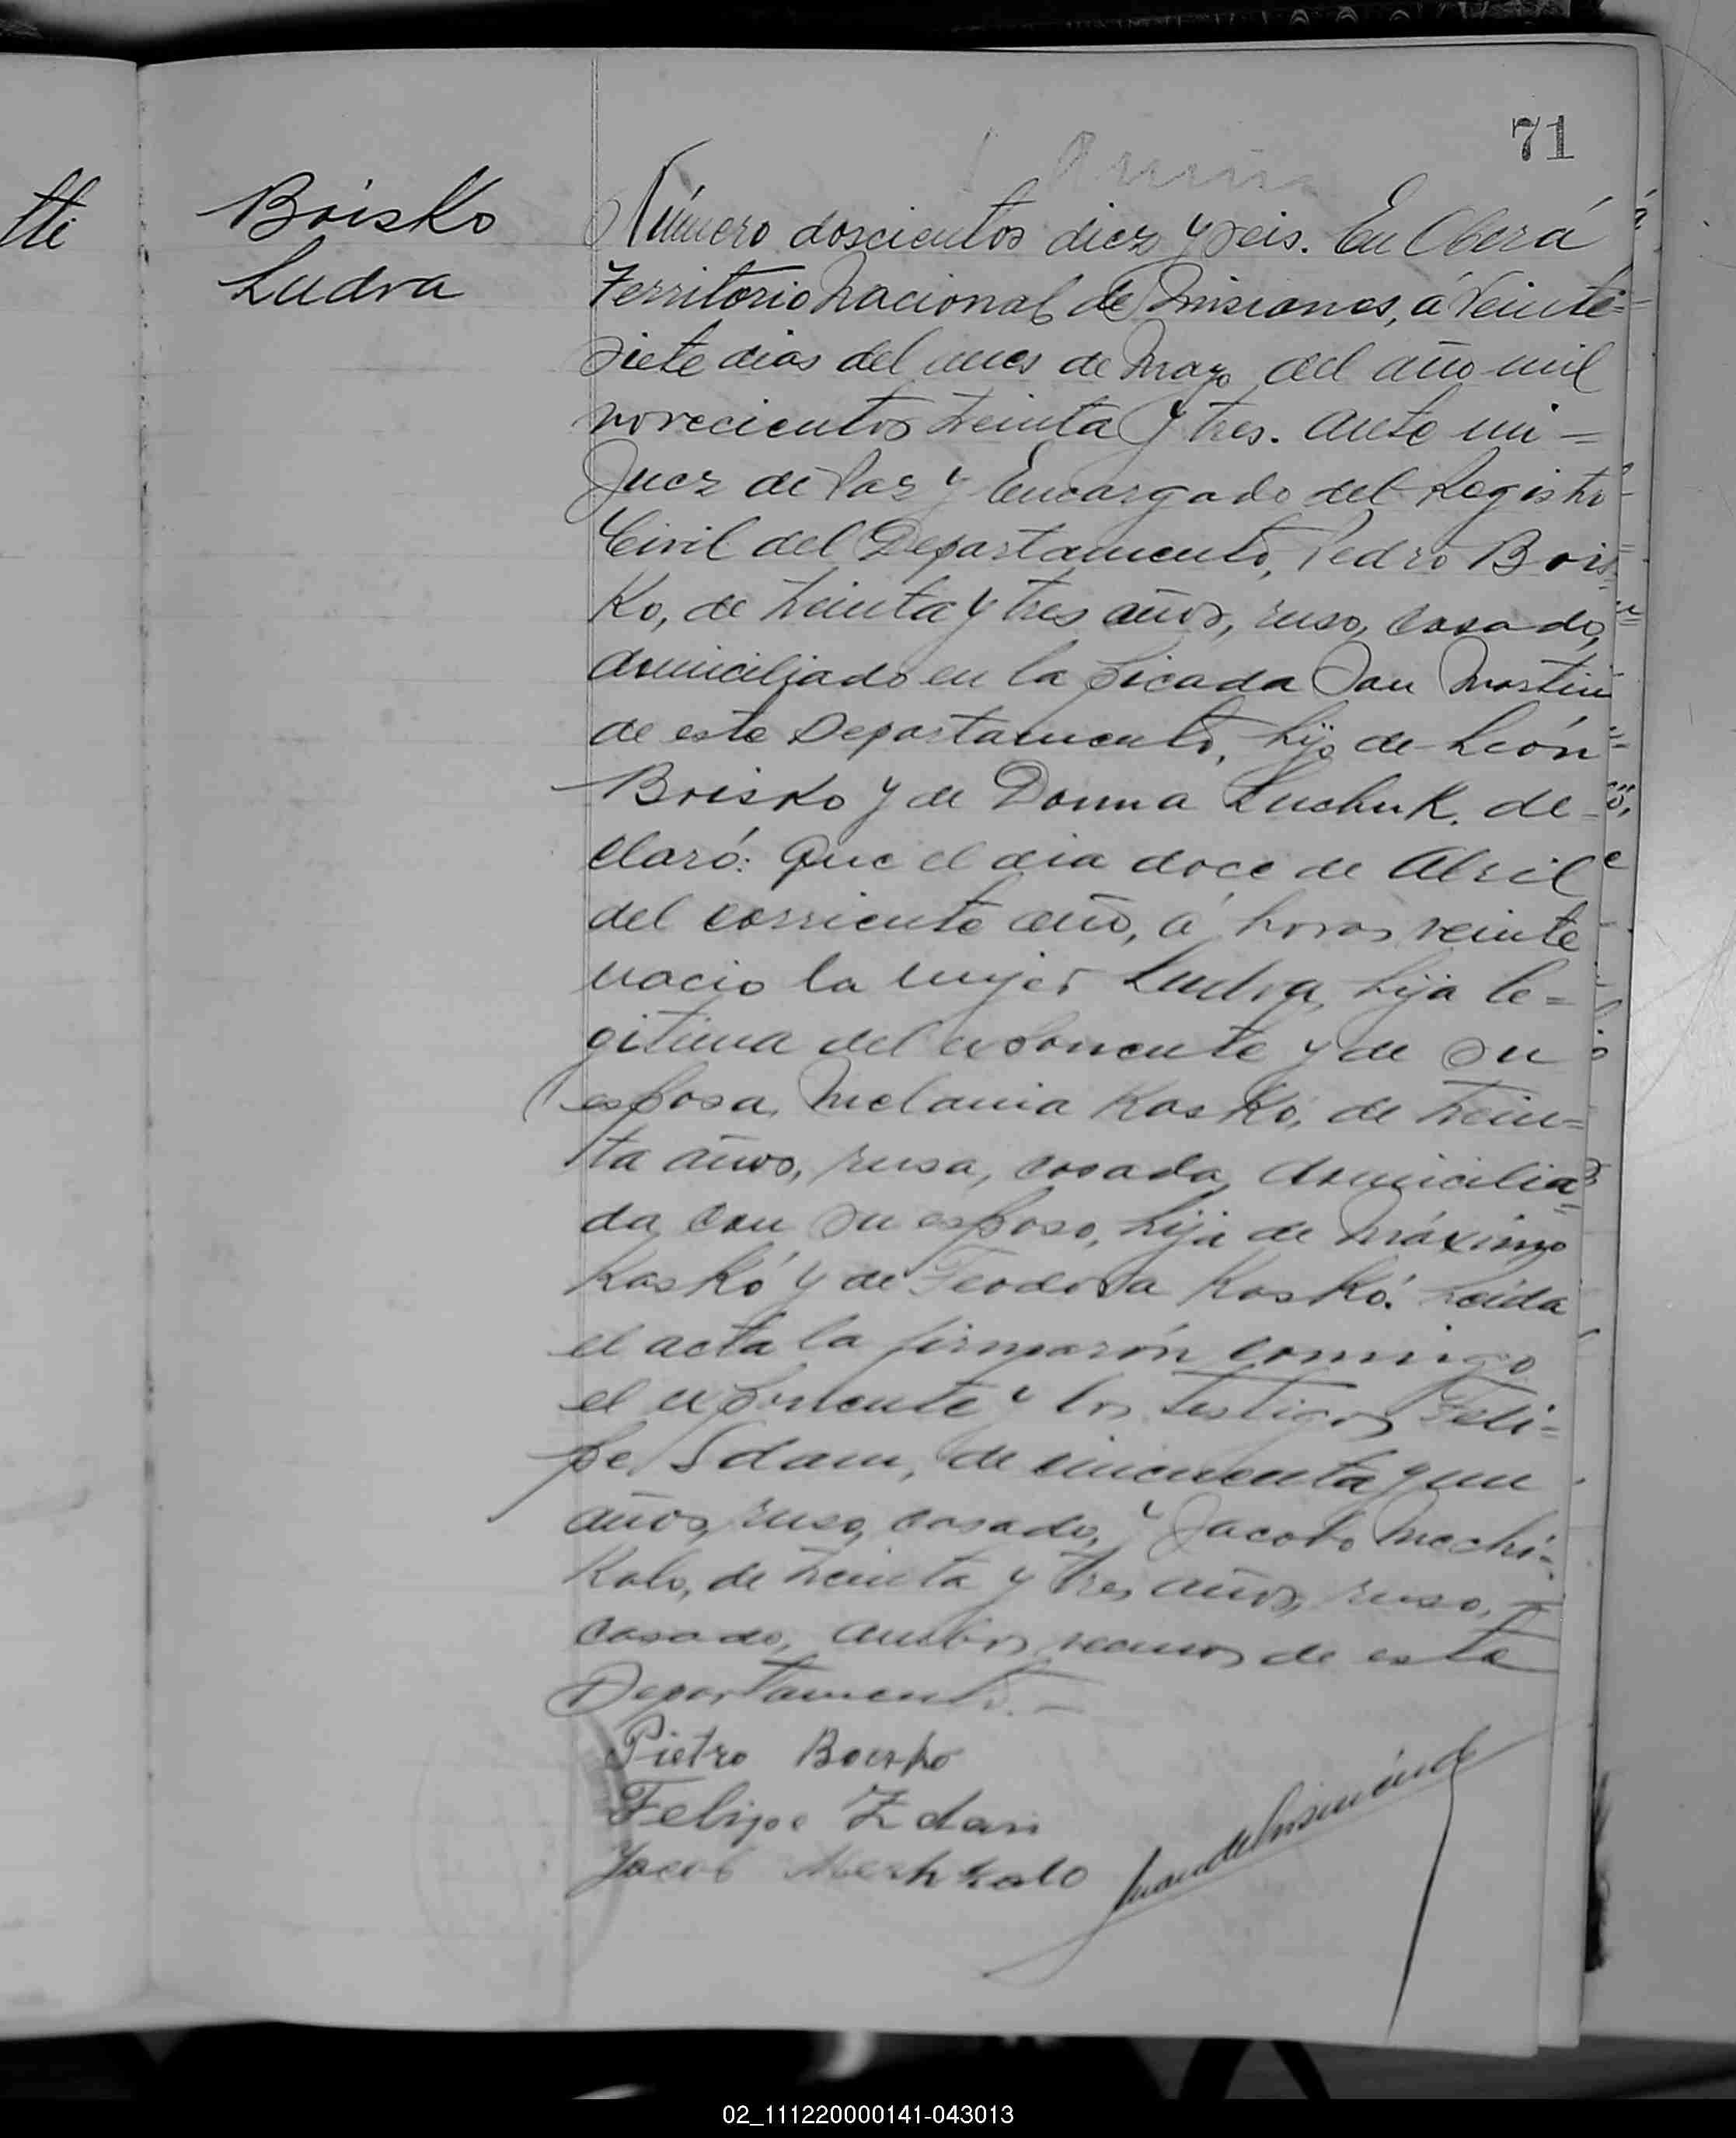 71
tti
Boisko
Ludva
Número doscientos diez y seis. En Oberá
Territorio Nacional de Misiones, á veinte=
siete dias del mes de Mayo del año mil
novecientos treinta y tres. Ante mi =
Juez de Paz y Encargado del Registro
Civil del Departamento, Pedro Bois=
ko, de treinta y tres años, ruso, casado,
domiciliado en la picada San Martin
de este Departamento, hijo de León
Boisko y de Domna Luchuk. de=
claró: Que el dia doce de Abril
del corriente año, á horas veinte
nacio la mujer Ludva, hija le=
gitima del exponente y de su
esposa, Melania Kaskó, de trein=
ta años, rusa, casada, domicilia=
da con su esposo, hija de Máximo
Kaskó y de Teodora Kaskó. Leida
el acta la firmarón conmigo
el exponente y los testigos Feli=
pe Sdam, de cincuenta y un
años, ruso, casado, y Jacobo Mechi=
kalo, de treinta y tres años, ruso, =
casado, ambos vecinos de este
Departamento. -
Pietro Boisko
Felipe Zdan
Jacob Mechkalo
02_111220000141-043013